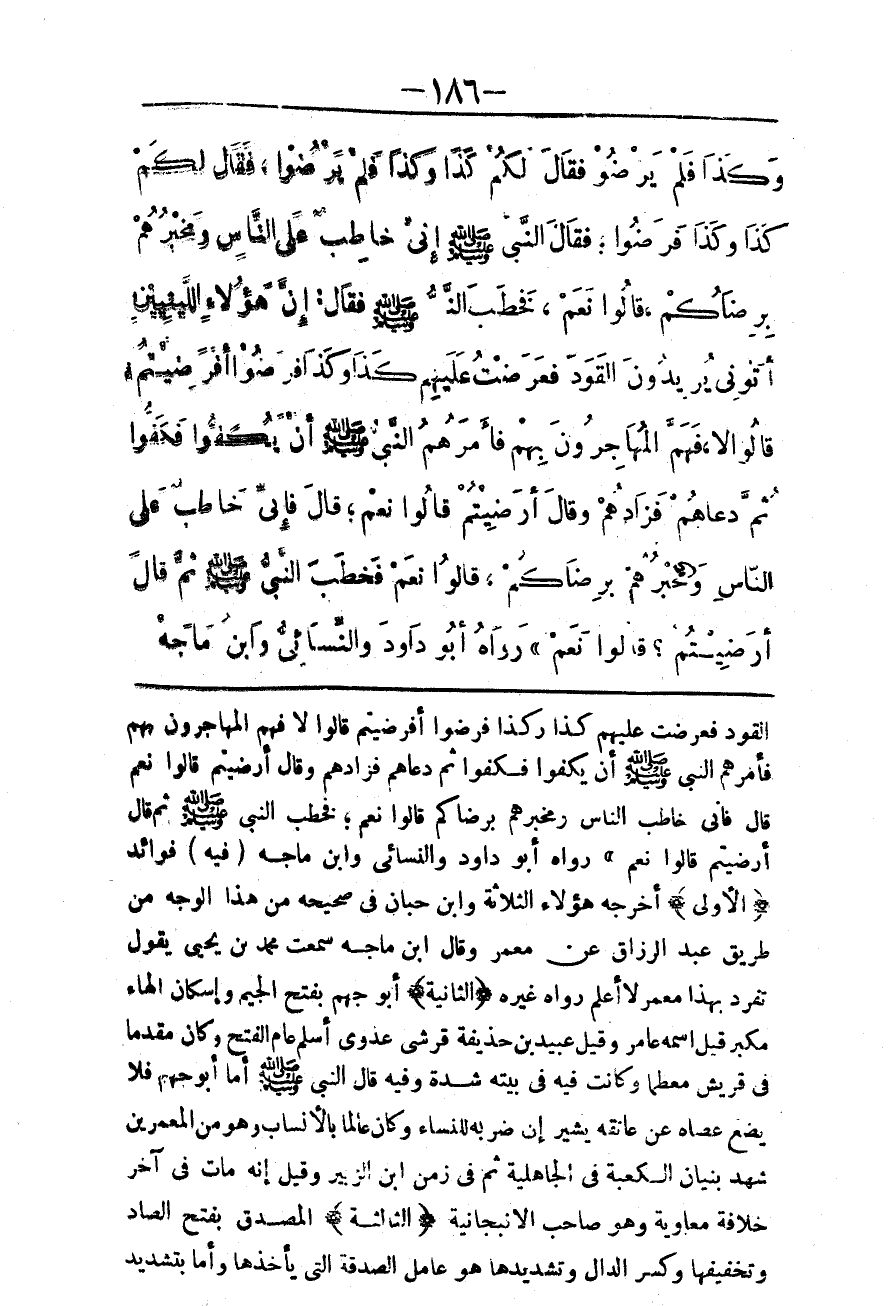 -١٨٦-
وَكَذَا فَلَمْ يَرْضُوْا فَقَالَ لَكُمْ كَذَا وَكَذَا فَلَمْ يَرْضُوْا ، فَقَالَ لَكُمْ
كَذَا وَكَذَا فَرَضُوا ؛ فَقَالَ النَّبِىُّ ﷺ إِنِّىْ خَاطِبٌ عَلَى النَّاسِ وَمُخْبِرُهُمْ
بِرِضَاكُمْ ، قَالُوا نَعَمْ ، فَخَطَبَ النَّبِىُّ ﷺ فَقَالَ : إِنَّ هَؤُلَاءِ اللَّيْثِيِّيْنَ
أَتَوْنِى يُرِيدُونَ القَوَدَ فَعَرَضْتُ عَلَيْهِم كَذَا وَكَذَا فَرَضُوْا أَفَرَضِيْتُمْ ؟
قَالُوا لَا ، فَهَمَّ الْمُهَاجِرُونَ بِهِمْ فَأَمَرَهُمُ النَّبِىُّ ﷺ أَنْ يَكُفُّوا فَكَفُّوا
ثُمَّ دَعَاهُمْ فَزَادَهُمْ وَقَالَ أَرَضِيْتُمْ قَالُوا نَعَمْ ؛ قَالَ فَإِنِّى خَاطِبٌ عَلَى
النَّاسِ وَمُخْبِرُهُمْ بِرِضَاكُمْ ، قَالُوا نَعَمْ فَخَطَبَ النَّبِىُّ ﷺ ثُمَّ قَالَ
أَرَضِيْتُمْ ؟ قَالُوا نَعَمْ » رَوَاهُ أَبُو دَاوُدَ وَالنَّسَائِىُّ وَابْنُ مَاجَهْ
القود فعرضت عليهم كذا وكذا فرضوا أفرضيتم قالوا لا فهم المهاجرون بهم
فأمرهم النبى ﷺ أن يكفوا فكفوا ثم دعاهم فزادهم وقال أرضيتم قالوا نعم
قال فانى خاطب الناس ومخبرهم برضاكم قالوا نعم ؛ فخطب النبى ﷺ ثم قال
أرضيتم قالوا نعم » رواه أبو داود والنسائى وابن ماجه ( فيه ) فوائد
﴿ الأولى ﴾ أخرجه هؤلاء الثلاثة وابن حبان فى صحيحه من هذا الوجه من
طريق عبد الرزاق عن معمر وقال ابن ماجه سمعت محمد بن يحيى يقول
تفرد بهذا معمر لا أعلم رواه غيره ﴿ الثانية ﴾ أبو جهم بفتح الجيم وإسكان الهاء
مكبر قيل اسمه عامر وقيل عبيد بن حذيفة قرشى عدوى أسلم عام الفتح وكان مقدما
فى قريش معظما وكانت فيه فى بيته شدة وفيه قال النبى ﷺ أما أبو جهم فلا
يضع عصاه عن عاتقه يشير إن ضربه للنساء وكان عالما بالأنساب وهو من المعمرين
شهد بنيان الكعبة فى الجاهلية ثم فى زمن ابن الزبير وقيل إنه مات فى آخر
خلافة معاوية وهو صاحب الانبجانية ﴿ الثالثة ﴾ المصدق بفتح الصاد
وتخفيفها وكسر الدال وتشديدها هو عامل الصدقة التى يأخذها وأما بتشديد